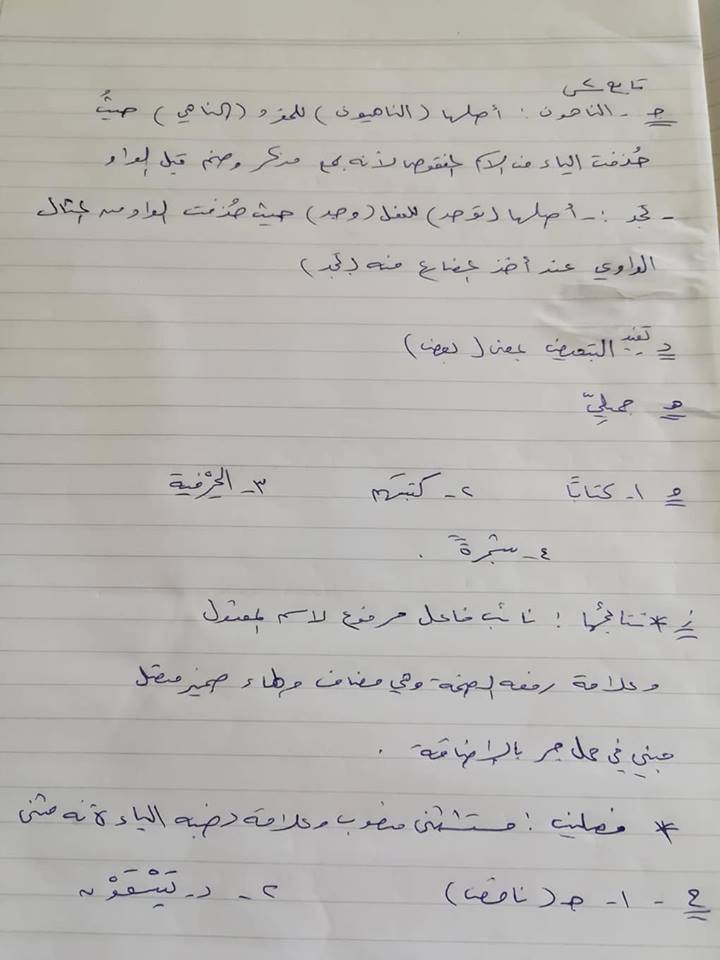 تابع س٢
ج - الناهون : أصلها (الناهيون) للمفرد (الناهي) حيثُ
حُذفت الياء من الاسم المنقوص لأنه جمع مذكر وضم قبل الواو
- تجد :- أصلها (توجد) للفعل (وجد) حيث حُذفت الواو من المثال
الواوي عند أخذ المضارع منه (تجد)
د تفيد التبعيض بمعنى (بعض)
هـ جمليّ
و ١- كتابًا ٢- كتبتهم ٣- الحِرْفية
٤- شجرةً .
ز * نتائجُها : نائب فاعل مرفوع لاسم المفعول
وعلامة رفعه الضمة وهي مضاف والهاء ضمير متصل
مبني في محل جر بالإضافة .
* فصلين : مستثنى منصوب وعلامة نصبه الياء لأنه مثنى
ح - ١- ج (ناقصًا) ٢- د- يَسْقَوْن